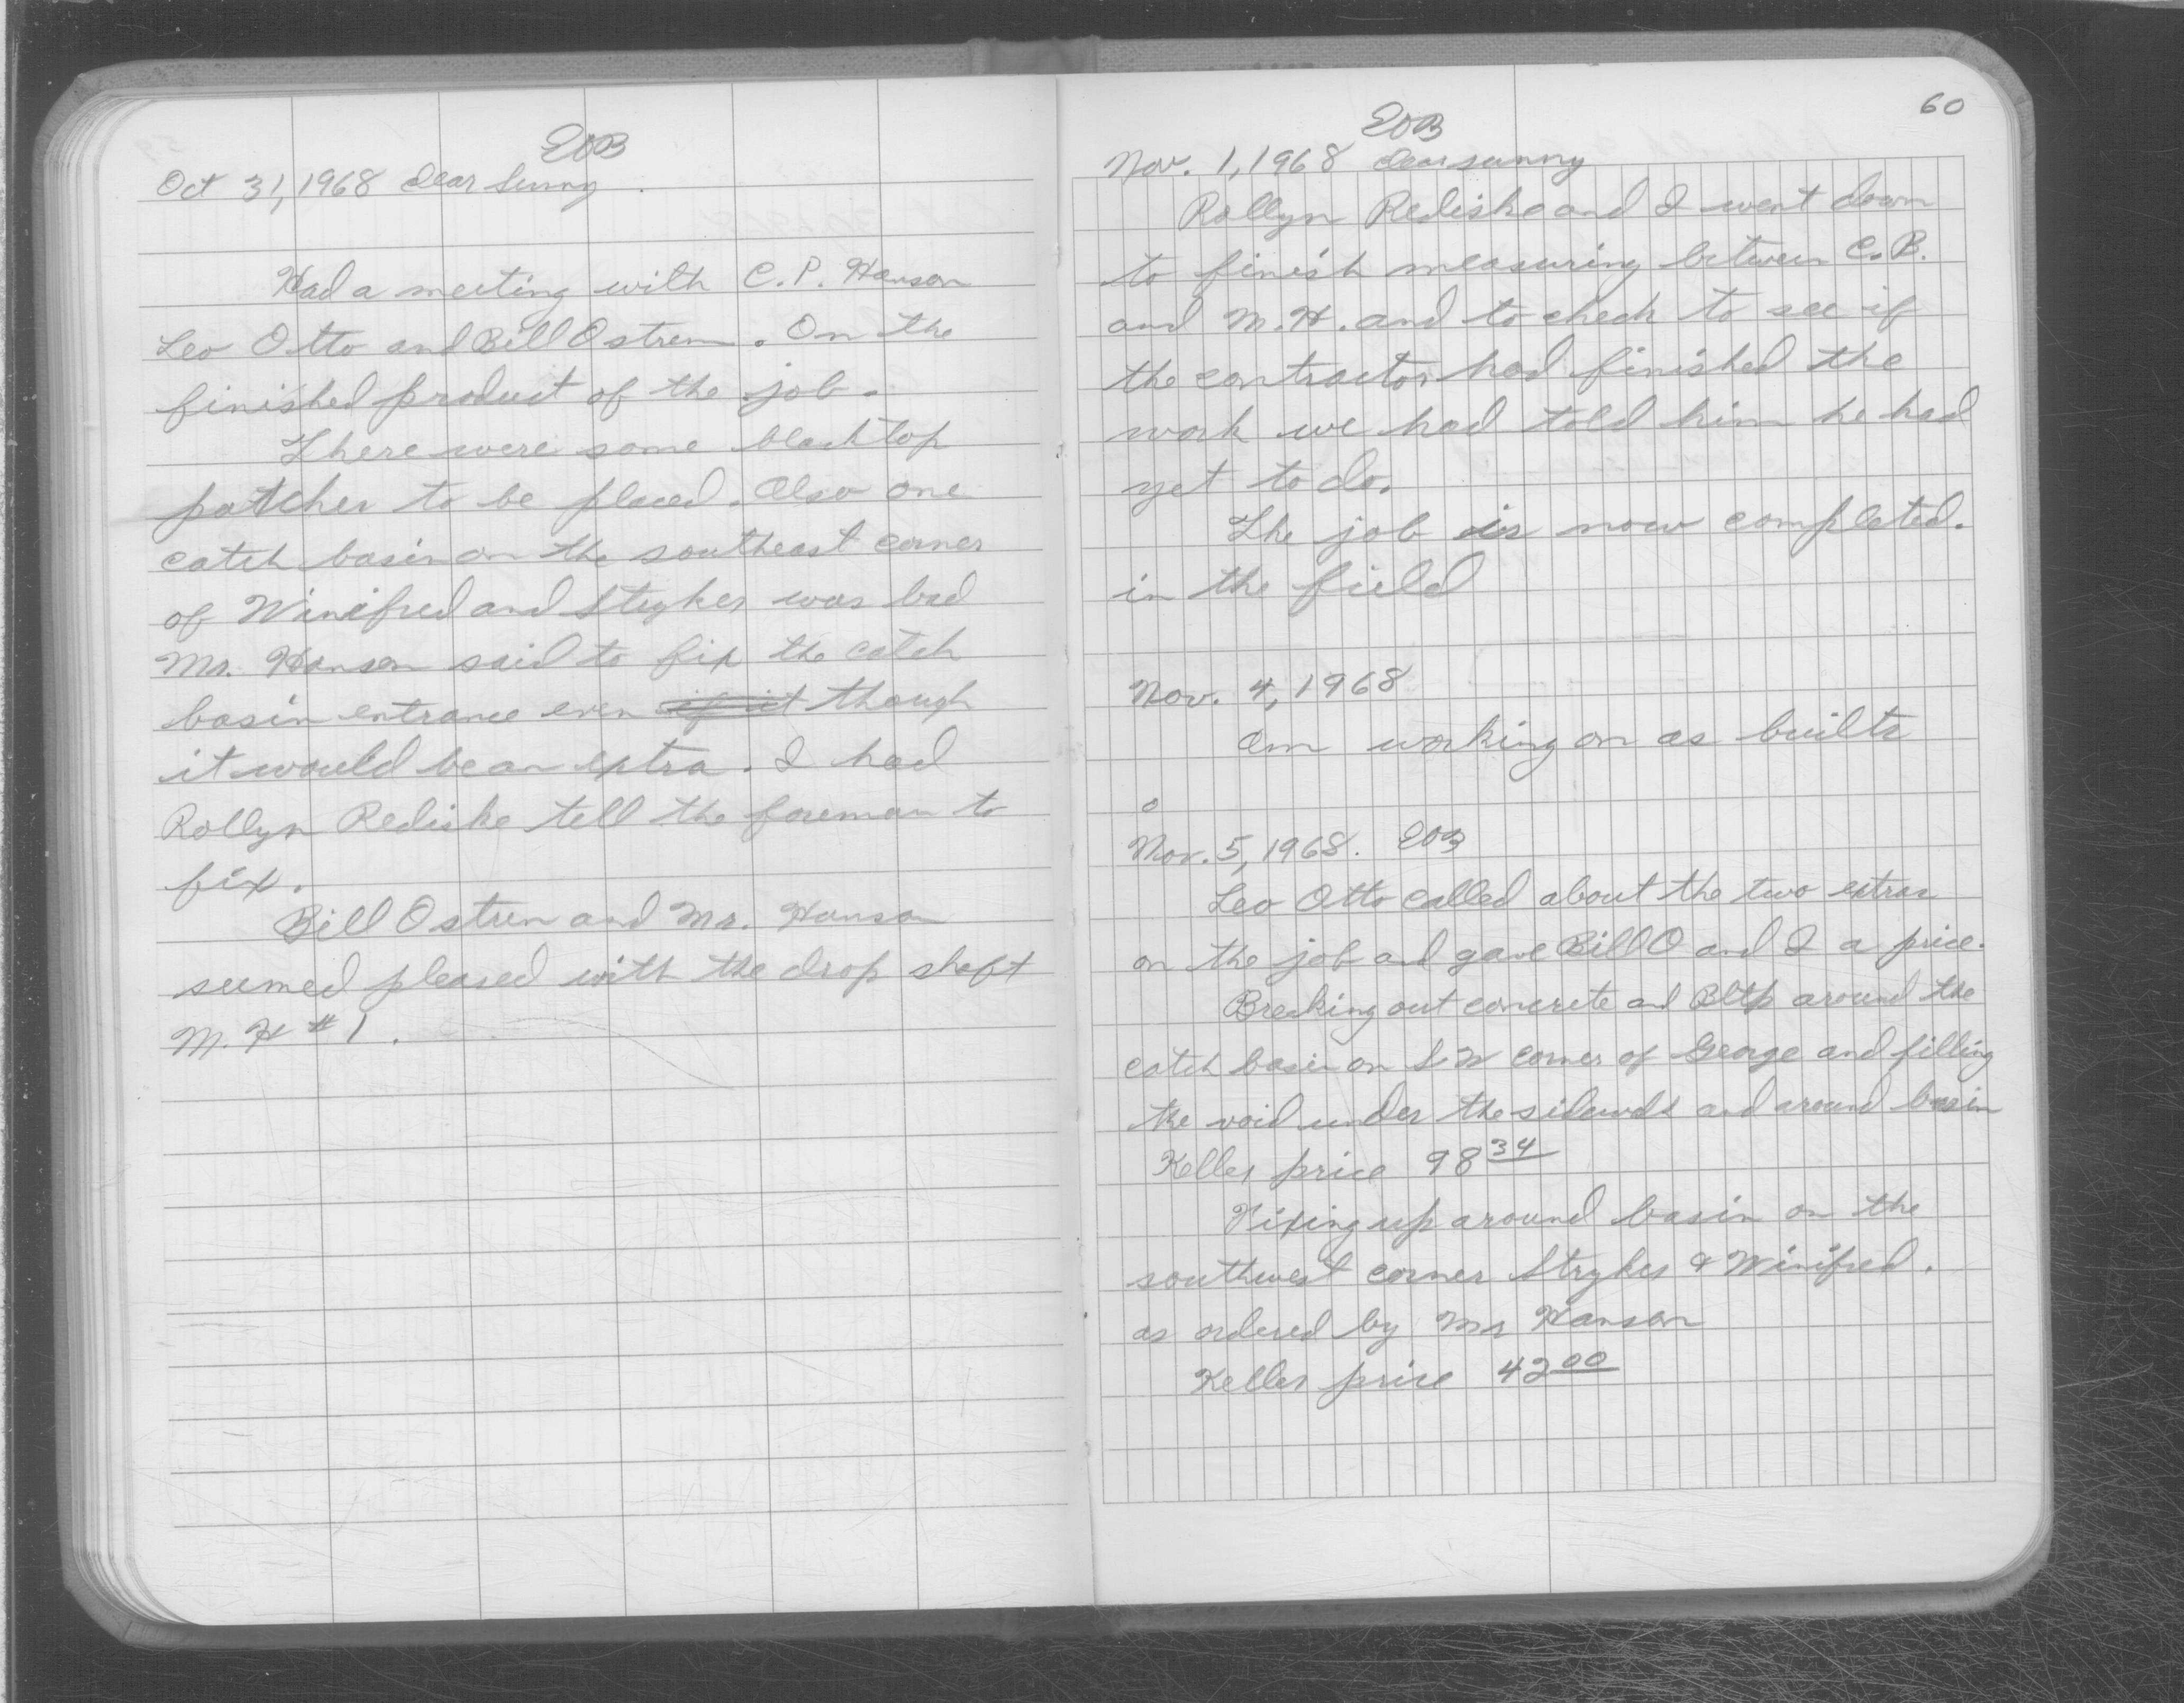 EOB
Oct 31, 1968 clear sunny.
Had a meeting with C.P. Hanson
Leo Otto and Bill Ostren. On the
finished product of the job.
There were some blacktop
patches to be placed. Also one
catch basin on the southeast corner
of Winifred and Stryker was bad
Mr. Hanson said to fix the catch
basin entrance even if it though
it would be an extra. I had
Rollyn Rediske tell the foreman to
fix.
Bill Ostren and Mr. Hanson
seemed pleased with the drop shaft
M. H #1.
60
EOB
Nov. 1, 1968 clear sunny
Rollyn Rediske and I went down
to finish measuring between C.B.
and M.H. and to check to see if
the contractor had finished the
work we had told him he had
yet to do.
The job is now completed.
in the field
Nov. 4, 1968
Am working on as builts
Nov. 5, 1968. EOB
Leo Otto called about the two extras
on the job and gave Bill O and I a price.
Breaking out concrete and Bltp around the
catch basin on S W corner of George and filling
the void under the sidewalk and around basin
Keller price 98 34
Fixing up around basin on the
southwest corner Stryker & Winifred.
as ordered by Mr Hanson
Keller price 42 00